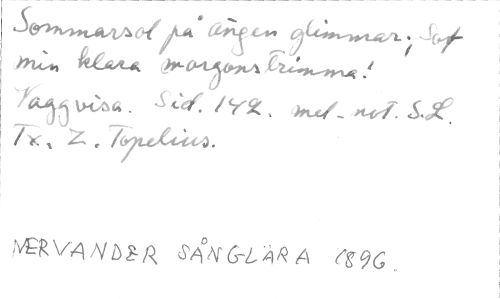 Sommarsol på ängen glimmar; Sof
min klara morgonstrimma!
Vaggvisa. Sid. 142. mel-not. S.L.
Tx. Z. Topelius.
NERVANDER SÅNGLÄRA 1896.